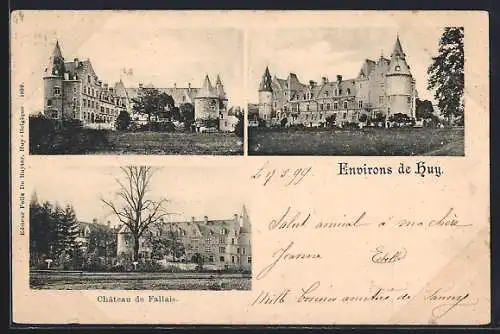 Editeur Felix De Ruyter, Huy - Belgique 1899.
Environs de Huy.
Le 7.5.99
Salut amical à ma chère
Jeanne
Mille bonnes amitiés de Fanny
Château de Fallais.